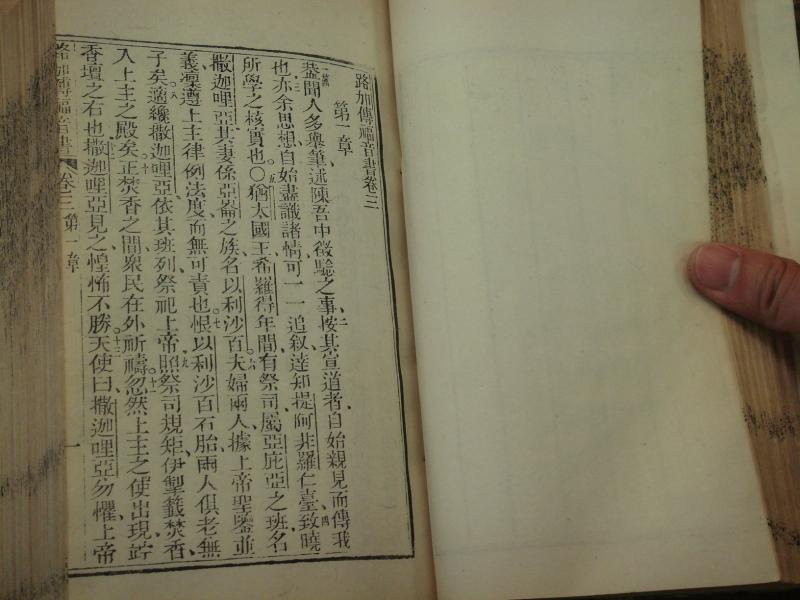 路加傳福音書卷三
第一章
一蓋聞人多舉筆述陳吾中徵驗之事、二按其宣道者自始親見而傳我
也、三亦余思想自始盡識諸情、可一一追叙、達知提阿非羅仁臺、四致曉
所學之核實也。○五猶太國王希羅得年間、有祭司屬亞庇亞之班、名
撒迦哩亞、其妻係亞崙之族、名以利沙百。六夫婦兩人、據上帝聖鑒、並
義凜遵上主律例法度、而無可責也。七恨以利沙百石胎、兩人俱老、無
子矣。八適纔撒迦哩亞依其班列祭祀上帝、九照祭司規矩、伊掣籤焚香、
入上主之殿矣。十正焚香之間、衆民在外祈禱。十忽然上主之使出現、竚
香壇之右也。撒迦哩亞見之、惶怖不勝。十三天使曰、撒迦哩亞勿懼、上帝
路加傳福音書 卷三 第一章 一